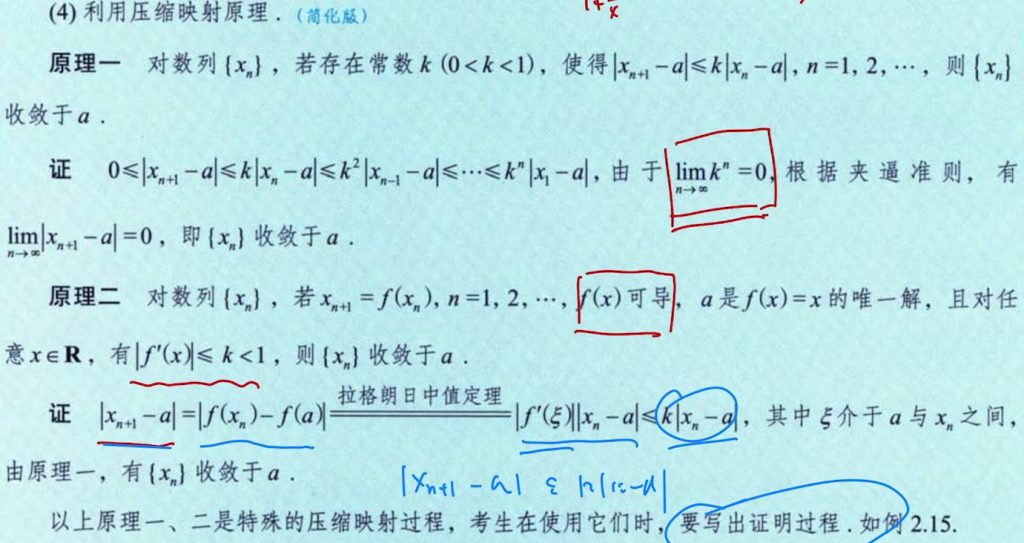 (4) 利用压缩映射原理.(简化版)
1+\frac{}{x}
原理一 对数列{x_n}, 若存在常数k (0<k<1), 使得|x_{n+1}-a|≤k|x_n-a|, n=1, 2, ⋯, 则{x_n}
收敛于a.
证 0≤|x_{n+1}-a|≤k|x_n-a|≤k^2|x_{n-1}-a|≤⋯≤k^n|x_1-a|, 由于\lim_{n→∞}k^n=0, 根据夹逼准则, 有
\lim_{n→∞}|x_{n+1}-a|=0, 即{x_n}收敛于a.
原理二 对数列{x_n}, 若x_{n+1}=f(x_n), n=1, 2, ⋯, f(x)可导, a是f(x)=x的唯一解, 且对任
意x∈R, 有|f'(x)|≤k<1, 则{x_n}收敛于a.
拉格朗日中值定理
证 |x_{n+1}-a|=|f(x_n)-f(a)|=|f'(ξ)||x_n-a|≤k|x_n-a|, 其中ξ介于a与x_n之间,
由原理一, 有{x_n}收敛于a.
|x_{n+1}-a|
以上原理一、二是特殊的压缩映射过程, 考生在使用它们时, 要写出证明过程.如例2.15.